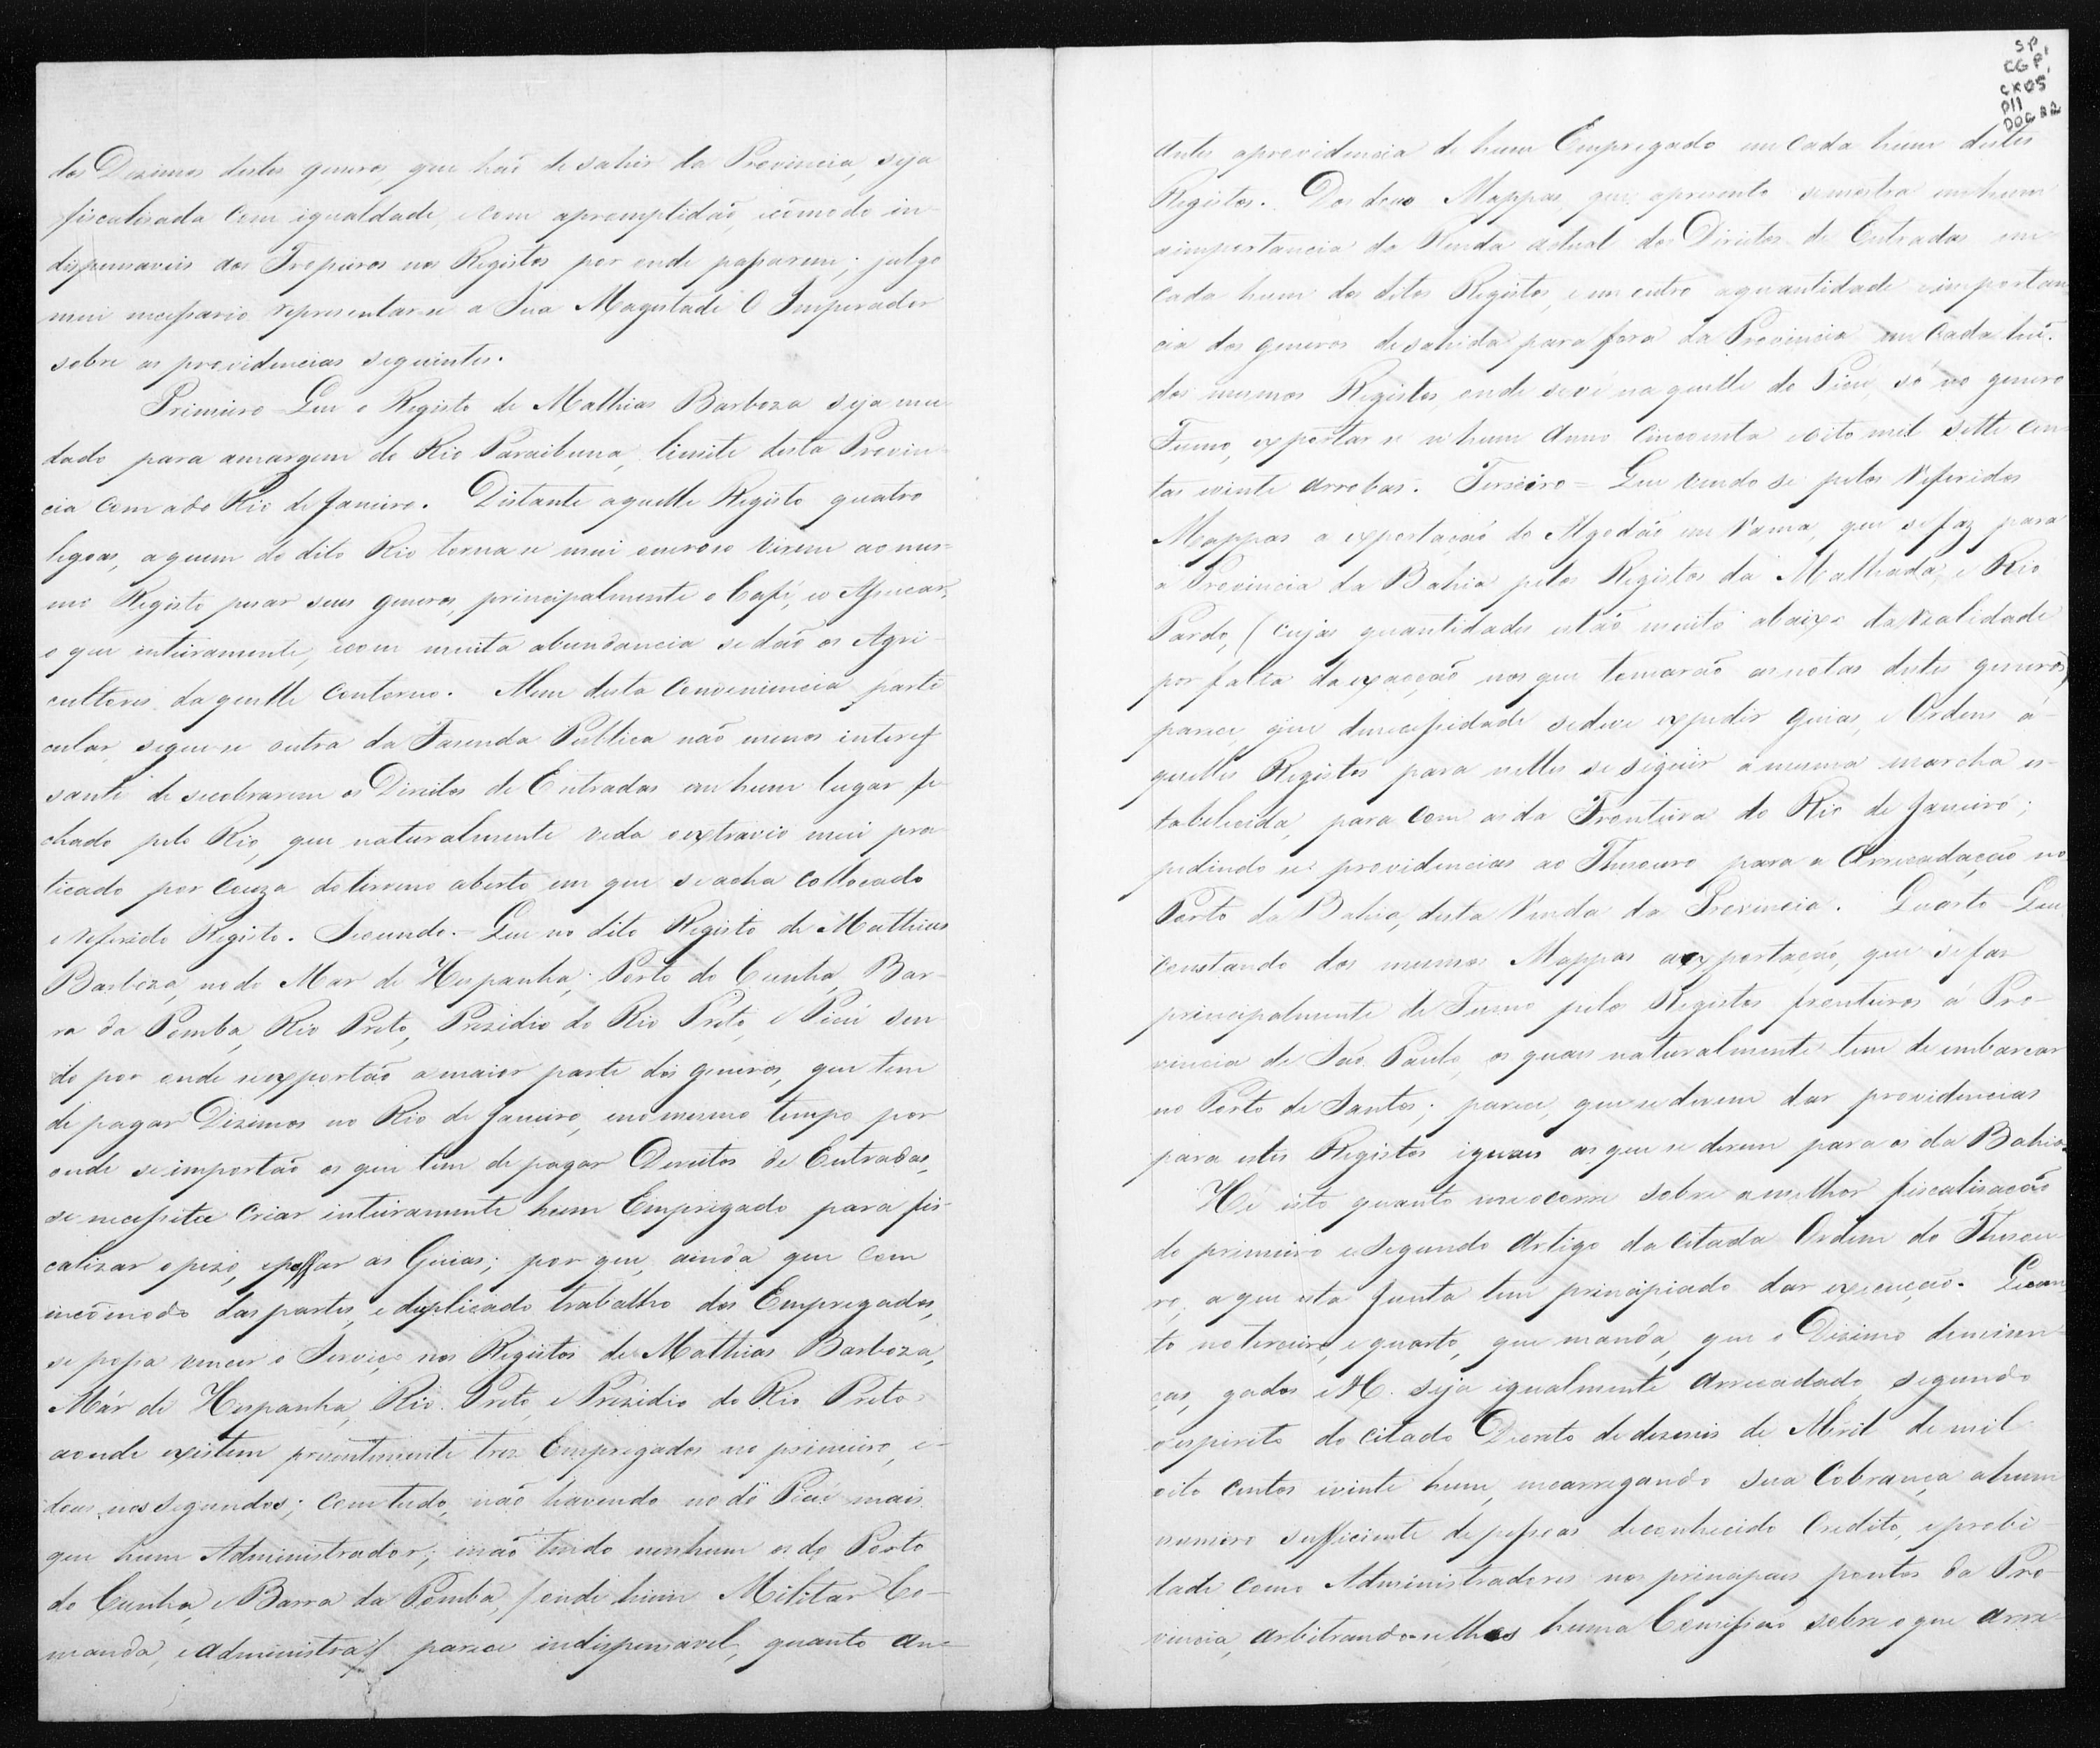 dos Dezimos destes generos, que hão de sahir da Provincia, seja
fiscalisada com igualdade, e com apromptidão, ecõmodo in-
dispensaveis aos Tropeiros nos Registos por onde passarem; julgo
mui necessario representar-se a Sua Magestade O Imperador
sobre as providencias seguintes.
Primeiro - Que o Registo de Mathias Barboza seja mu-
dado para amargem do Rio Paraibuna, limite desta Provin-
cia com ado Rio de Janeiro. Distante aquelle Registo quatro
legoas, aquem do dito Rio torna se mui oneroso virem ao mes-
mo Registo pesar seus generos, principalmente o Café, e o Assucar,
a que inteiramente, ecom muita abundancia se dão os Agri-
cultores daquelle contorno. Alem desta conveniencia parti-
cular, segue-se outra da Fasenda Publica não menos interes-
sante de secobrarem os Direitos de Entradas em hum lugar fe-
chado pelo Rio, que naturalmente veda oextravio mui pra-
ticado por cauza do terreno aberto em que se acha collocado
o referido Registo. Secundo - Que no dito Registo de Mathias
Barboza, no do Mar de Hespanha, Porto do Cunha, Bar-
ra da Pomba, Rio Preto, Presidio do Rio Preto, e Picú sen-
do por onde seexportão amaior parte dos generos, que tem
de pagar Dizimos no Rio de Janeiro, eno mesmo tempo por
onde se importão os que tem de pagar Direitos de Entradas,
se necessita criar inteiramente hum Empregado para fis-
calizar opezo, epassar as Guias; por que, ainda que com
incõmodo das partes, e duplicado trabalho dos Empregados,
se possa vencer o Serviço nos Registos de Mathias Barboza,
Már de Hespanha, Rio Preto, e Prezidio do Rio Preto
aonde existem prezentemente trez Empregados no primeiro, e
dous nos segundos; com tudo, não havendo no do Picú mais
que hum Administrador; enão tendo nenhum os do Porto
do Cunha, e Barra da Pomba, /onde hum Militar Co-
manda, e Administra/ parece indispensavel, quanto an-

SP,
CGP1
CX05
P11
DOC 22
antes aprovidencia de hum Empregado em cada hum destes
Registos. Dos dous Mappas, que apresento semostra emhum
aimportancia da Renda actual dos Direitos de Entradas em
cada hum dos ditos Registos, e em outro aquantidade eimportan-
cia dos generos desahida para fora da Provincia em cada hũ.
dos mesmos Registos onde sevê naquelle do Picú, só no genero
Fumo, exportar se n'hum Anno Cincoenta eoito mil sette cen-
tas evinte arrobas. Terseiro = Que vendo se pelos referidos
Mappas a exportação do Algodão em rama, que sefaz para
a Provincia da Bahia pelos Registos da Malhada, e Rio
Pardo, (cujas quantidades estão muito abaixo da realidade
por falta da exacção nos que tomarão as notas destes generos)
parece, que denecessidade sedeve expedir Guias, e Ordens á-
quelles Registos para nelles se seguir amesma marcha es-
tabelecida, para com os da Fronteira do Rio de Janeiro;
pedindo se providencias ao Thesouro para a Arrecadação no
Porto da Bahia, desta Renda da Provincia. Quarto - Que
constando dos mesmos Mappas aexportação, que sefas
principalmente de Fumo pelos Registos fronteiros á Pro-
vincia de São Paulo, os quaes naturalmente tem de embarcar
no Porto de Santos; parece, que se devem dar providencias
para estes Registos iguaes as que se derem para os da Bahia.
Hé isto quanto meocorre sobre amelhor fiscalisação
do primeiro e segundo Artigo da citada Ordem do Thesou-
ro, aque esta Junta tem principiado dar execução. Quan-
to ao terceiro, e quarto, que manda, que o Dizimo demiun-
ças, gados e&. seja igualmente arrecadado segundo
oespirito do citado Decreto de deseseis de Abril de mil
oito centos evinte hum, encarregando sua Cobrança ahum
numero sufficiente depessoas deconhecido Credito, eprobi-
dade como Administradores nos principaes pontos da Pro-
vincia, arbitrando-selhes huma Comissão sobre oque arre-